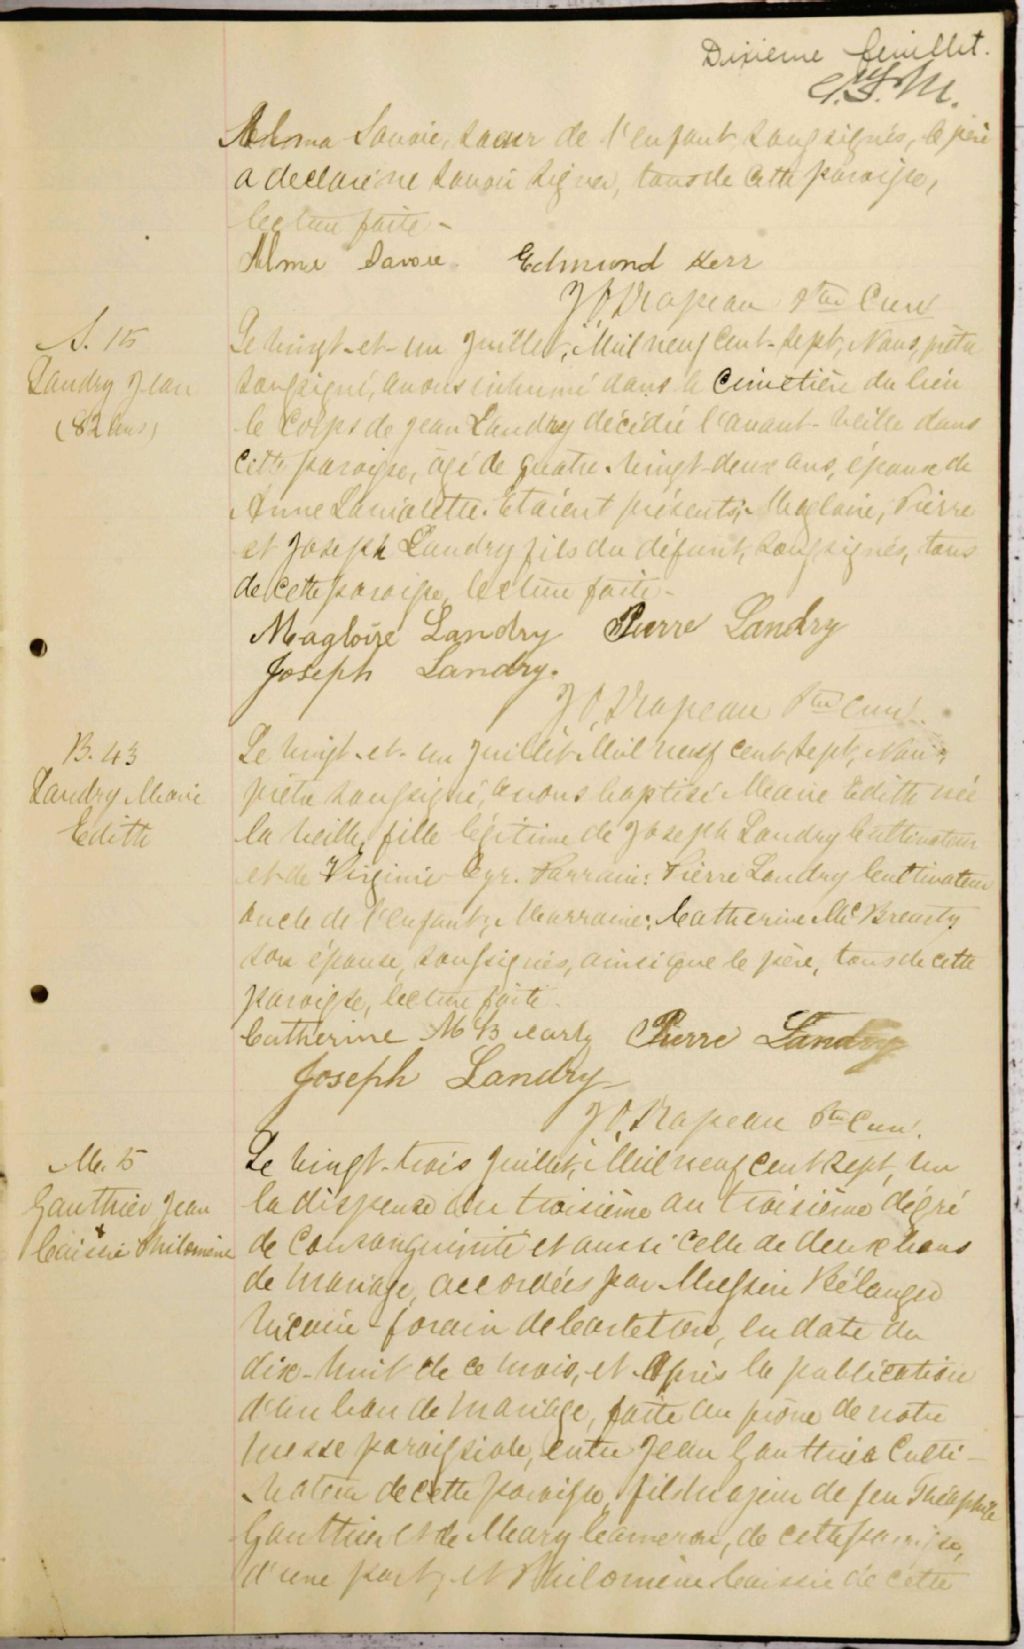 Dixieme feuillet.
Alma Savoie, sœur de l'enfant, soussignés, le père
a declaré ne savoir signer, tous de cette paroisse,
lecture faite -
Alma Savoie Edmond Kerr
J O Drapeau Ptre Curé
S. 15
Landry Jean
(82 ans)
Le vingt-et-un Juillet, Mil neuf cent-sept, Nous, prêtre
soussigné, avons inhumé dans le cimetière du lieu
le corps de Jean Landry décédé l'avant-veille dans
cette paroisse, âgé de quatre-vingt-deux ans, époux de
Anne. Etaient présents: Magloire, Pierre
et Joseph Landry fils du défunt, soussignés, tous
de cette paroisse, lecture faite -
Magloire Landry Pierre Landry
Joseph Landry.
J O. Drapeau Ptre Curé.
B. 43
Landry Marie
Edith
Le vingt-et-un Juillet Mil neuf cent sept, Nous,
prêtre soussigné, avons baptisé Marie Edith née
la veille, fille légitime de Joseph Landry Cultivateur
et de Virginie Cyr. Parrain: Pierre Landry Cultivateur
oncle de l'enfant; Marraine: Catherine McBrearty
son épouse, soussignés, ainsi que le père, tous de cette
paroisse, lecture faite.
Catherine McBrearty Pierre Landry
Joseph Landry
J O. Drapeau Ptre Curé.
M. 5
Gauthier Jean
& Caissie Philomène
Le vingt-trois Juillet, Mil neuf cent sept, vu
la dispense du troisième au troisième dégré
de consanguinité et aussi celle de deux bans
de mariage, accordées par Messire Bélanger
vicaire-forain de Carleton, en date du
dix-huit de ce mois, et après la publication
d'un ban de mariage, faite au prône de notre
messe paroissiale, entre Jean Gauthier Culti-
vateur de cette paroisse, fils majeur de feu Théophile
Gauthier et de Mary Cameron, de cette paroisse,
d'une part, et Philomène Caissie de cette